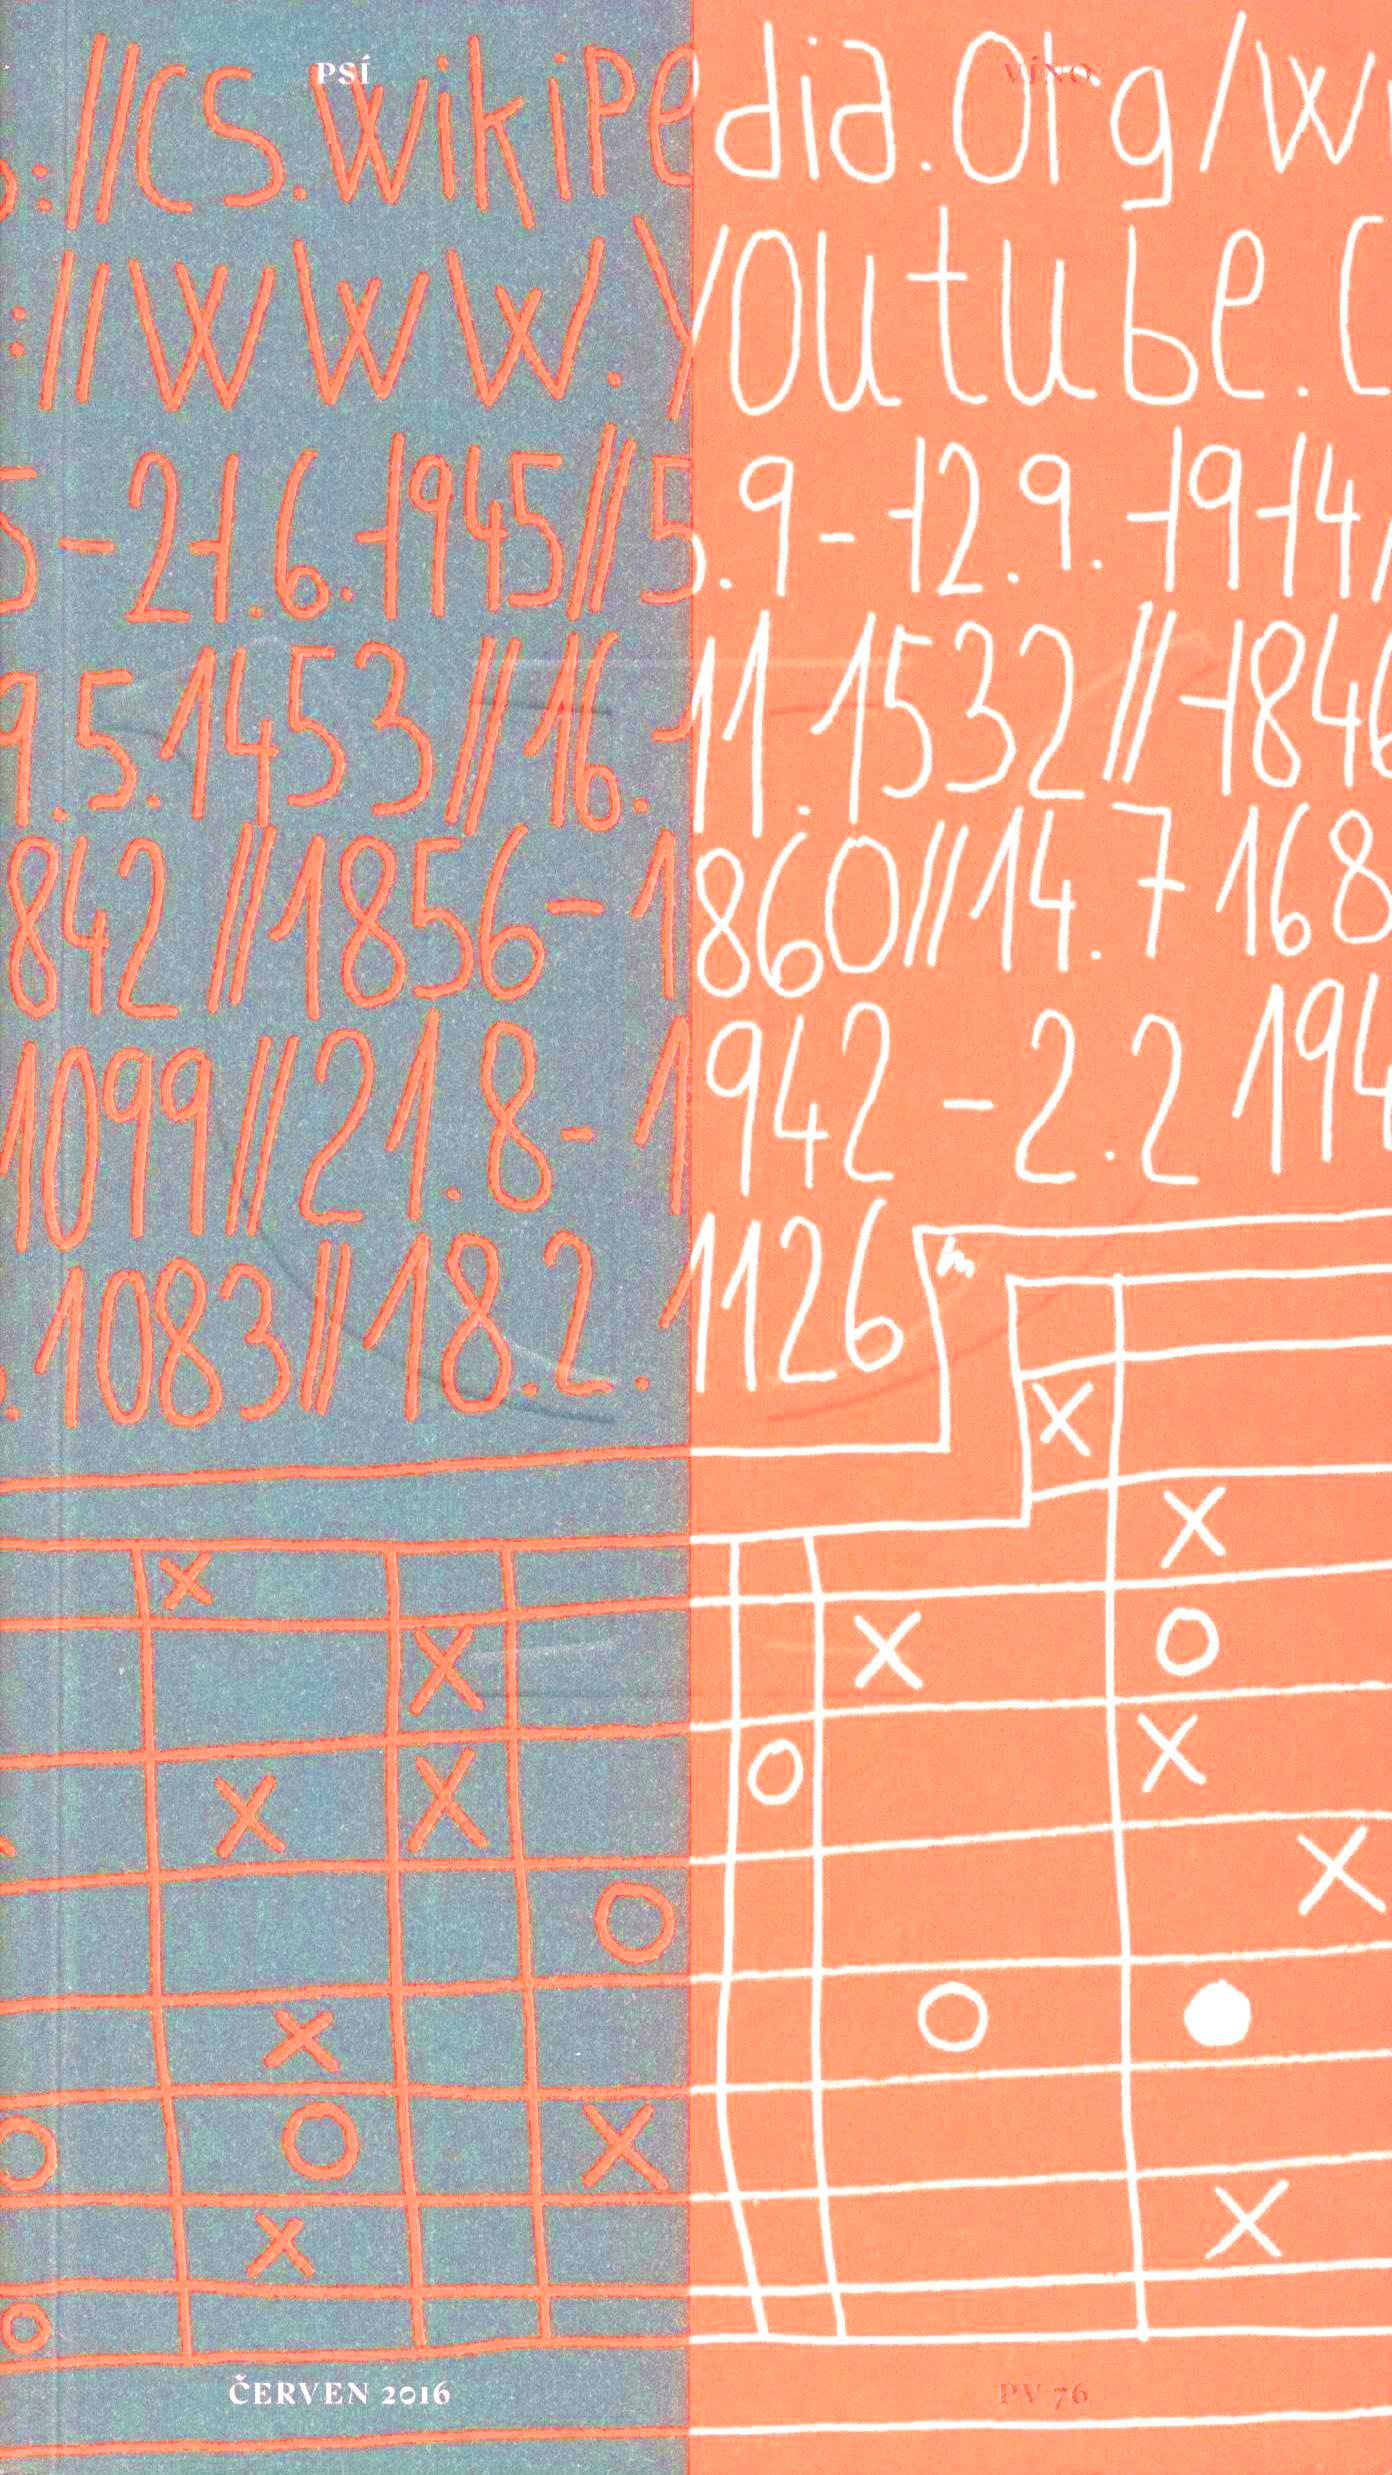 PSÍ VÍNO
://cs.wikipedia.org/w
://www.youtube.c
5-21.6.1945//5.9-12.9.1914/
9.5.1453//16.11.1532//1846
842//1856-1860//14.7 168
1099//21.8-1942-2.2 194
.1083//18.2.1126
ČERVEN 2016 PV 76